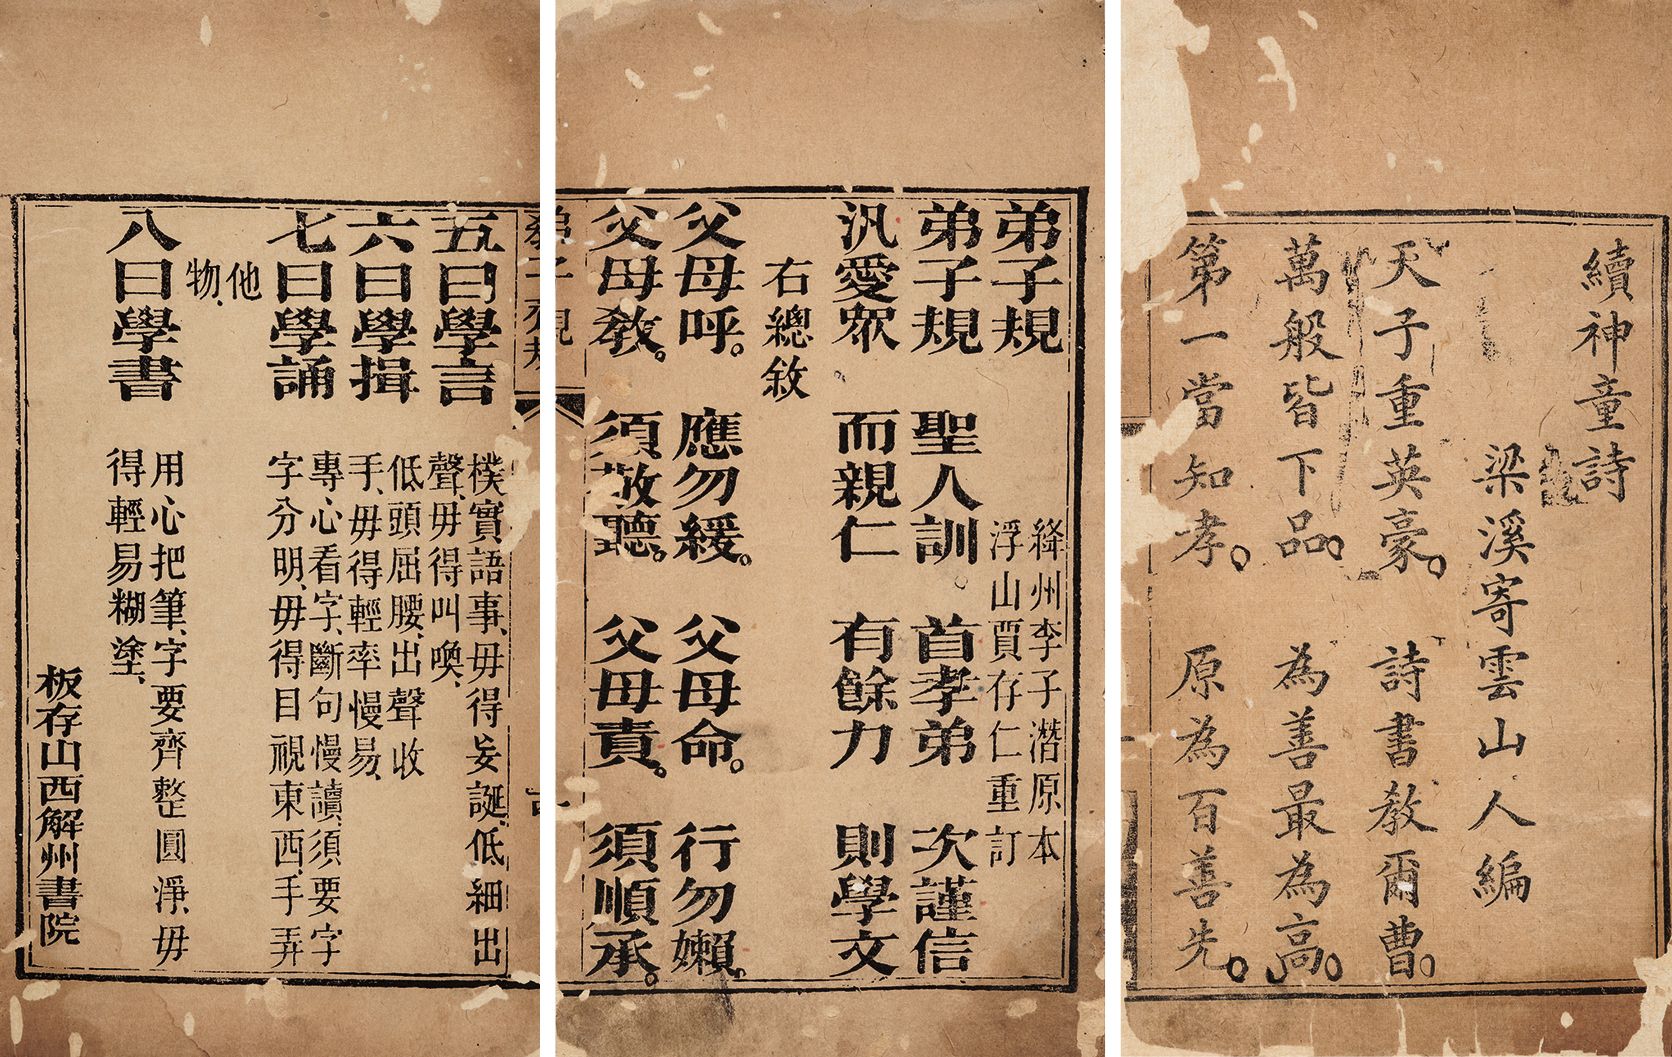 續神童詩
梁溪寄雲山人編
天子重英豪。詩書教爾曹。
萬般皆下品。為善最為高。
第一當知孝。原為百善先。
弟子規
絳州李子潛原本
浮山賈存仁重訂
弟子規 聖人訓。 首孝弟 次謹信
汎愛眾 而親仁 有餘力 則學文
右總敘
父母呼。應勿緩。父母命。行勿嬾。
父母教。須敬聽。父母責。須順承。
五曰學言
樸實語事、毋得妄誕、低細出
聲、毋得叫喚、
六曰學揖
低頭屈腰、出聲收
手、毋得輕率慢易、
七曰學誦
專心看字、斷句慢讀、須要字
字分明、毋得目視東西、手弄
他
物、
八曰學書
用心把筆、字要齊整圓淨、毋
得輕易糊塗、
板存山西解州書院